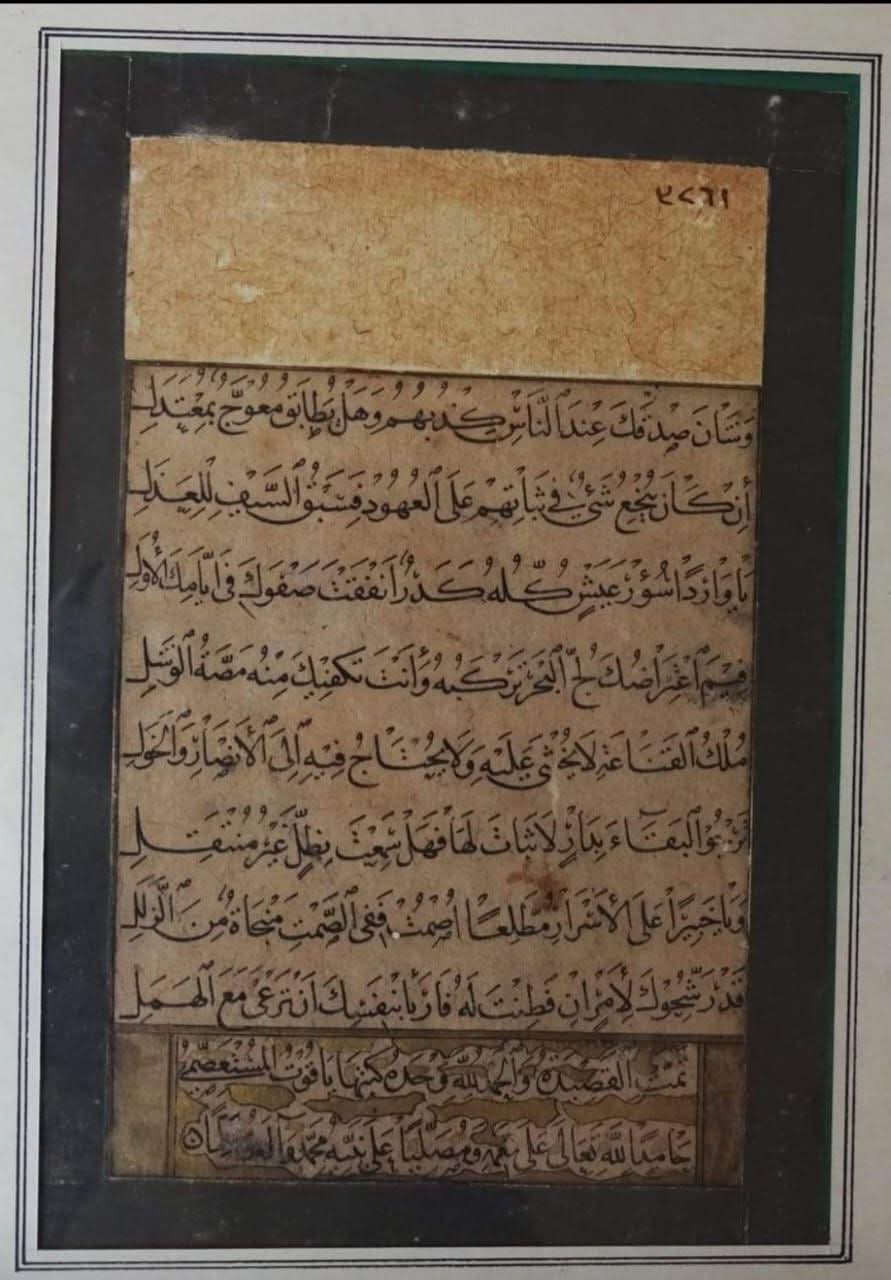 ٣٢٦١
وَشَانَ صِدْقَكَ عِنْدَ النَّاسِ كِذْبُهُمُ وَهَلْ يُطَابَقُ مُعْوَجٌّ بِمُعْتَدِلِ
إِنْ كَانَ يَنْجَعُ شَيْءٌ فِي ثَبَاتِهِمُ عَلَى الْعُهُودِ فَسَبْقُ السَّيْفِ لِلْعَذَلِ
يَا وَارِدًا سُؤْرَ عَيْشٍ كُلُّهُ كَدَرٌ أَنْفَقْتَ صَفْوَكَ فِي أَيَّامِكَ الْأُوَلِ
فِيمَ اعْتِرَاضُكَ لُجَّ الْبَحْرِ تَرْكَبُهُ وَأَنْتَ تَكْفِيكَ مِنْهُ مَصَّةُ الْوَشَلِ
مُلْكُ الْقَنَاعَةِ لَا يُخْشَى عَلَيْهِ وَلَا يُحْتَاجُ فِيهِ إِلَى الْأَنْصَارِ وَالْخَوَلِ
تَرْجُو الْبَقَاءَ بِدَارٍ لَا ثَبَاتَ لَهَا فَهَلْ سَمِعْتَ بِظِلٍّ غَيْرِ مُنْتَقِلِ
وَيَا خَبِيرًا عَلَى الْأَسْرَارِ مُطَّلِعًا اُصْمُتْ فَفِي الصَّمْتِ مَنْجَاةٌ مِنَ الزَّلَلِ
قَدْ رَشَّحُوكَ لِأَمْرٍ إِنْ فَطِنْتَ لَهُ فَارْبَأْ بِنَفْسِكَ أَنْ تَرْعَى مَعَ الْهَمَلِ
تَمَّتِ الْقَصِيدَةُ وَالْحَمْدُ لِلَّهِ وَحْدَهُ كَتَبَهَا يَاقُوتُ الْمُسْتَعْصِمِيُّ
حَامِدًا لِلَّهِ تَعَالَى عَلَى نِعَمِهِ وَمُصَلِّيًا عَلَى نَبِيِّهِ مُحَمَّدٍ وَآلِهِ